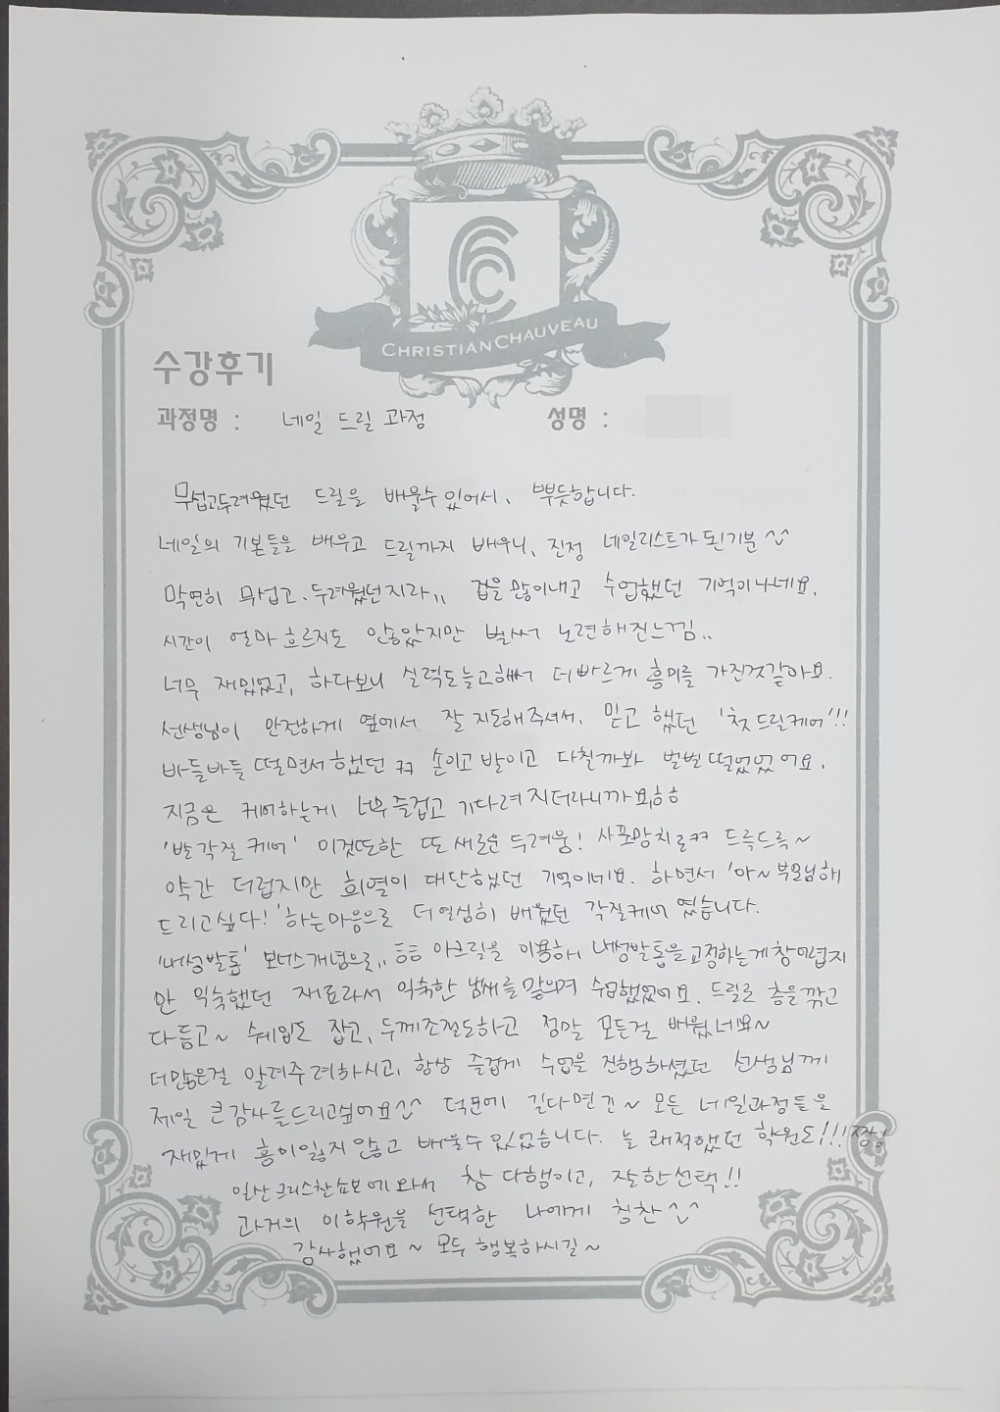 CHRISTIAN CHAUVEAU
수강후기
과정명 : 네일 드릴 과정 성명 :
무섭고두려웠던 드릴을 배울수 있어서, 뿌듯합니다.
네일의 기본들을 배우고 드릴까지 배우니, 진정 네일리스트가 된기분^^
막연히 무섭고.두려웠던지라,, 겁을 많이내고 수업했던 기억이나네요.
시간이 얼마 흐르지도 않았지만 벌써 노련해진느낌..
너무 재밌었고, 하다보니 실력도늘고해서 더빠르게 흥미를 가진것같아요.
선생님이 안전하게 옆에서 잘 지도해주셔서. 믿고 했던 '첫드릴케어'!!
바들바들 떨면서했던ㅋㅋ 손이고 발이고 다칠까봐 벌벌 떨었었어요.
지금은 케어하는게 너무즐겁고 기다려지더라니까요ㅎㅎ
'발각질 케어' 이것또한 또새로운 두려움! 사포망치로ㅋㅋ 드륵드륵~
약간 더럽지만 희열이 대단했던 기억이네요. 하면서 '아~부모님해
드리고싶다!' 하는마음으로 더열심히 배웠던 각질케어 였습니다.
'내성발톱' 보너스개념으로,, 통통 아크릴을 이용해 내성발톱을교정하는게창이롭지
만 익숙했던 재료라서 익숙한 냄새를맡으며 수업했었어요. 드릴로 층을깎고
다듬고~ 쉐입도 잡고, 두께조절도하고 정말 모든걸 배웠네요~
더많은걸 알려주려하시고, 항상 즐겁게 수업을 진행하셨던 선생님께
제일 큰감사를드리고싶어요^^ 덕분에 길다면긴~ 모든 네일과정들을
재밌게 흥미잃지않고 배울수있었습니다. 늘 쾌적했던 학원도!!!짱!
일산크리스찬쇼보에와서 참 다행이고, 잘한선택!!
과거의 이학원을 선택한 나에게 칭찬^^
감사했어요~ 모두 행복하시길~